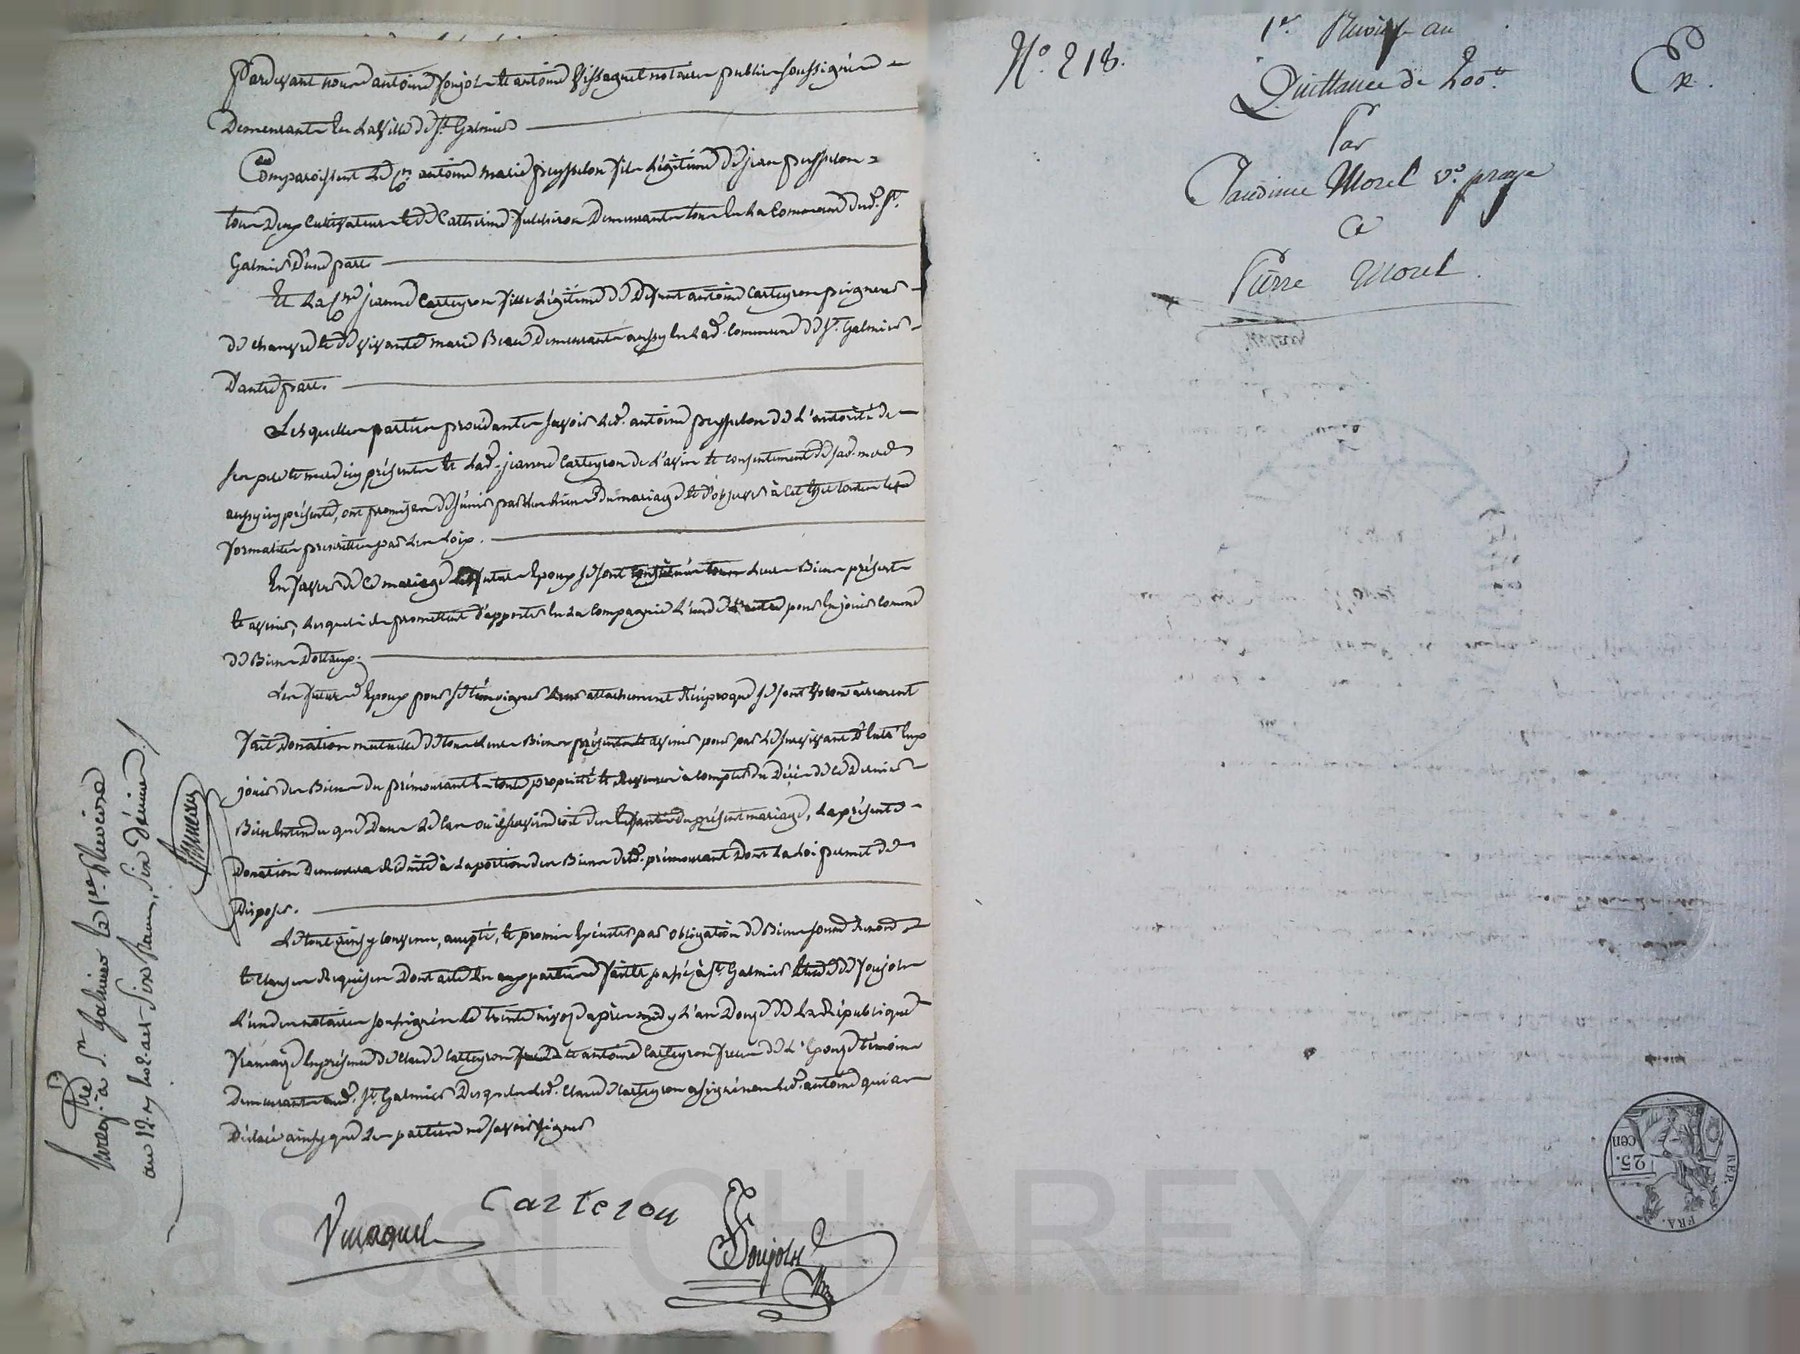 Pardevant nous antoine Soujols et antoine Vissaguet notaires publics soussignés
Demeurants En La Ville de St. Galmier
Comparoissent Le Cn. antoine marie peysselon fils Légitime de jean peysselon
tous deux cultivateurs et de Catherine demeurants tous En La Commune dud. St.
Galmier D'une part
Et La Cne. jeanne Carteyron fille Légitime de Defunt antoine Carteyron peigneur
de chanvre et de vivante marie demeurante aussy En Lad. Commune de St. Galmier
D'autre part.
Lesquelles parties procedantes savoir Led. antoine peysselon de L'autorité de
ses pere et mere icy présents et Lad. jeanne Carteyron de L'avis et consentement de sad. mere
aussy icy présente, ont promis de s'unir par Les liens du mariage et d'observer à cet effet toutes Les
formalités prescrittes par Les Loix.
En faveur de Ce mariage Les futurs Epoux se sont constitués tous Leurs Biens présents
et avenir, Lesquels ils promettent d'apporter En La Compagnie L'un de L'autre pour En jouir Comme
de Biens Dottaux.
Les futurs Epoux pour se témoigner Leur attachement Réciproque se sont volontairement
fait Donation mutuelle de tous Leurs Biens présents et avenir pour par Le survivant d'Entr'Eux
jouir des Biens du prémourant En toute propriété et à compter du Décès de ce Dernier
Bien Entendu que Dans Le Cas où il surviendroit des Enfants du présent mariage, La présente
Donation Demeurera Réduite à La portion des Biens dud. prémourant Dont La Loi permet de
Disposer.
Le tout ainsy Convenu, accepté, et promis Exécuter par obligation de Biens
et clauses Requises Dont acte Er aux parties fait et passé à St. Galmier Etude de Soujols
L'un des notaires soussignés Le trente nivose après midy L'an Douze de La République
française En présence de Claude Carteyron et antoine Carteyron frere de L'Epouse témoins
Demeurants aud. St. Galmier Desquels Led. Claude Carteyron a signé non Led. antoine qui a
Déclaré ainsy que Les parties ne savoir signer
Carteron
Vissaguet
Soujols
Enreg. à St. Galmier le 1er. Pluviose
an 12. Reçu six francs, six décimes
N.º 218.
1er. Pluviose an
Quittance de 200 tt
Par
Claudine Morel ve. praye
A
Pierre Morel
Ex.
REP. FRA.
25. cen
Pascal CHAREYRON